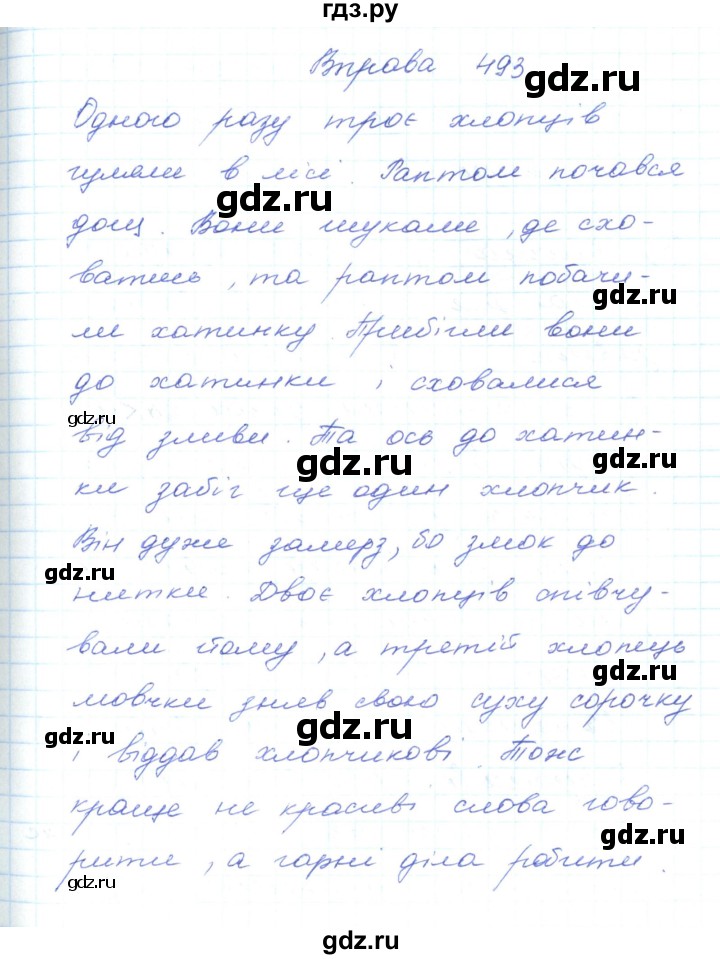 гдз.ру
Вправа 493
gdz.ru
Одного разу троє хлопців
гуляли в лісі. Раптом почався
gdz.ru
дощ. Вони шукали, де схо-
ватись, та раптом побачи-
gdz.ru
ли хатинку. Прибігли вони
до хатинки і сховалися
gdz.ru
від зливи. Та ось до хатин-
gdz.ru gdz.ru
ки забіг ще один хлопчик.
Він дуже замерз, бо змок до
gdz.ru
нитки. Двоє хлопців співчу-
вали йому, а третій хлопець
gdz.ru
мовчки зняв свою суху сорочку
gdz.ru gdz.ru
і віддав хлопчикові. Тож
краще не красиві слова гово-
gdz.ru
рити, а гарні діла робити.
gdz.ru
gdz.ru